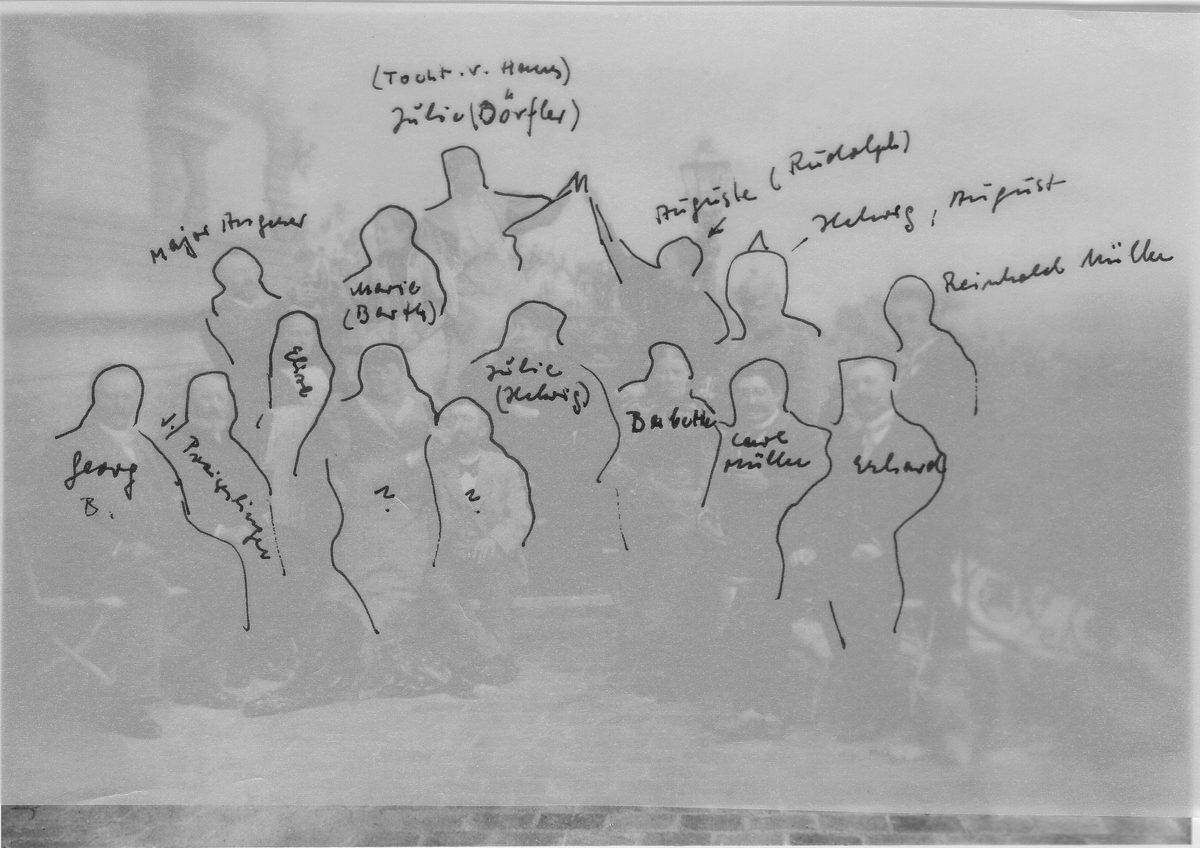 (Tocht. v. Hans)
Julie (Dörfler)
Auguste (Rudolph)
Helwig, August
Major
Reinhold Müller
Marie
(Barth)
Elise
Julie
(Helwig)
Babette
Carl
Müller
Erhard
Georg
B.
v.
?
?